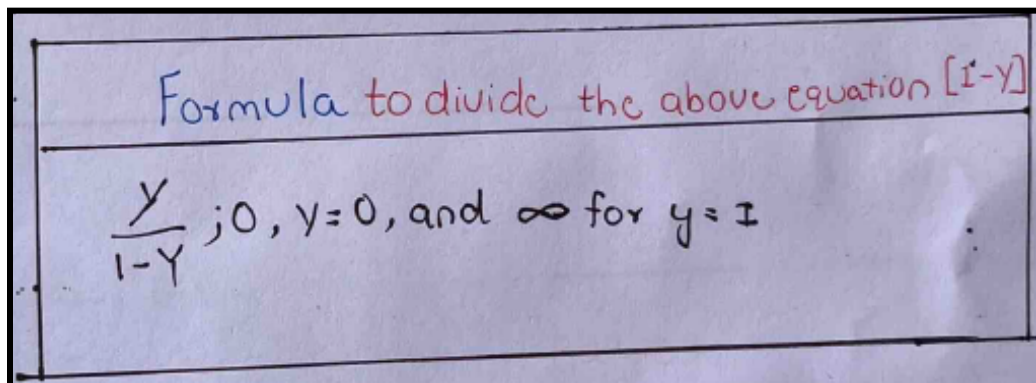 Formula to divide the above equation [I-Y]
y/1-Y ;0, y=0, and ∞ for y = I